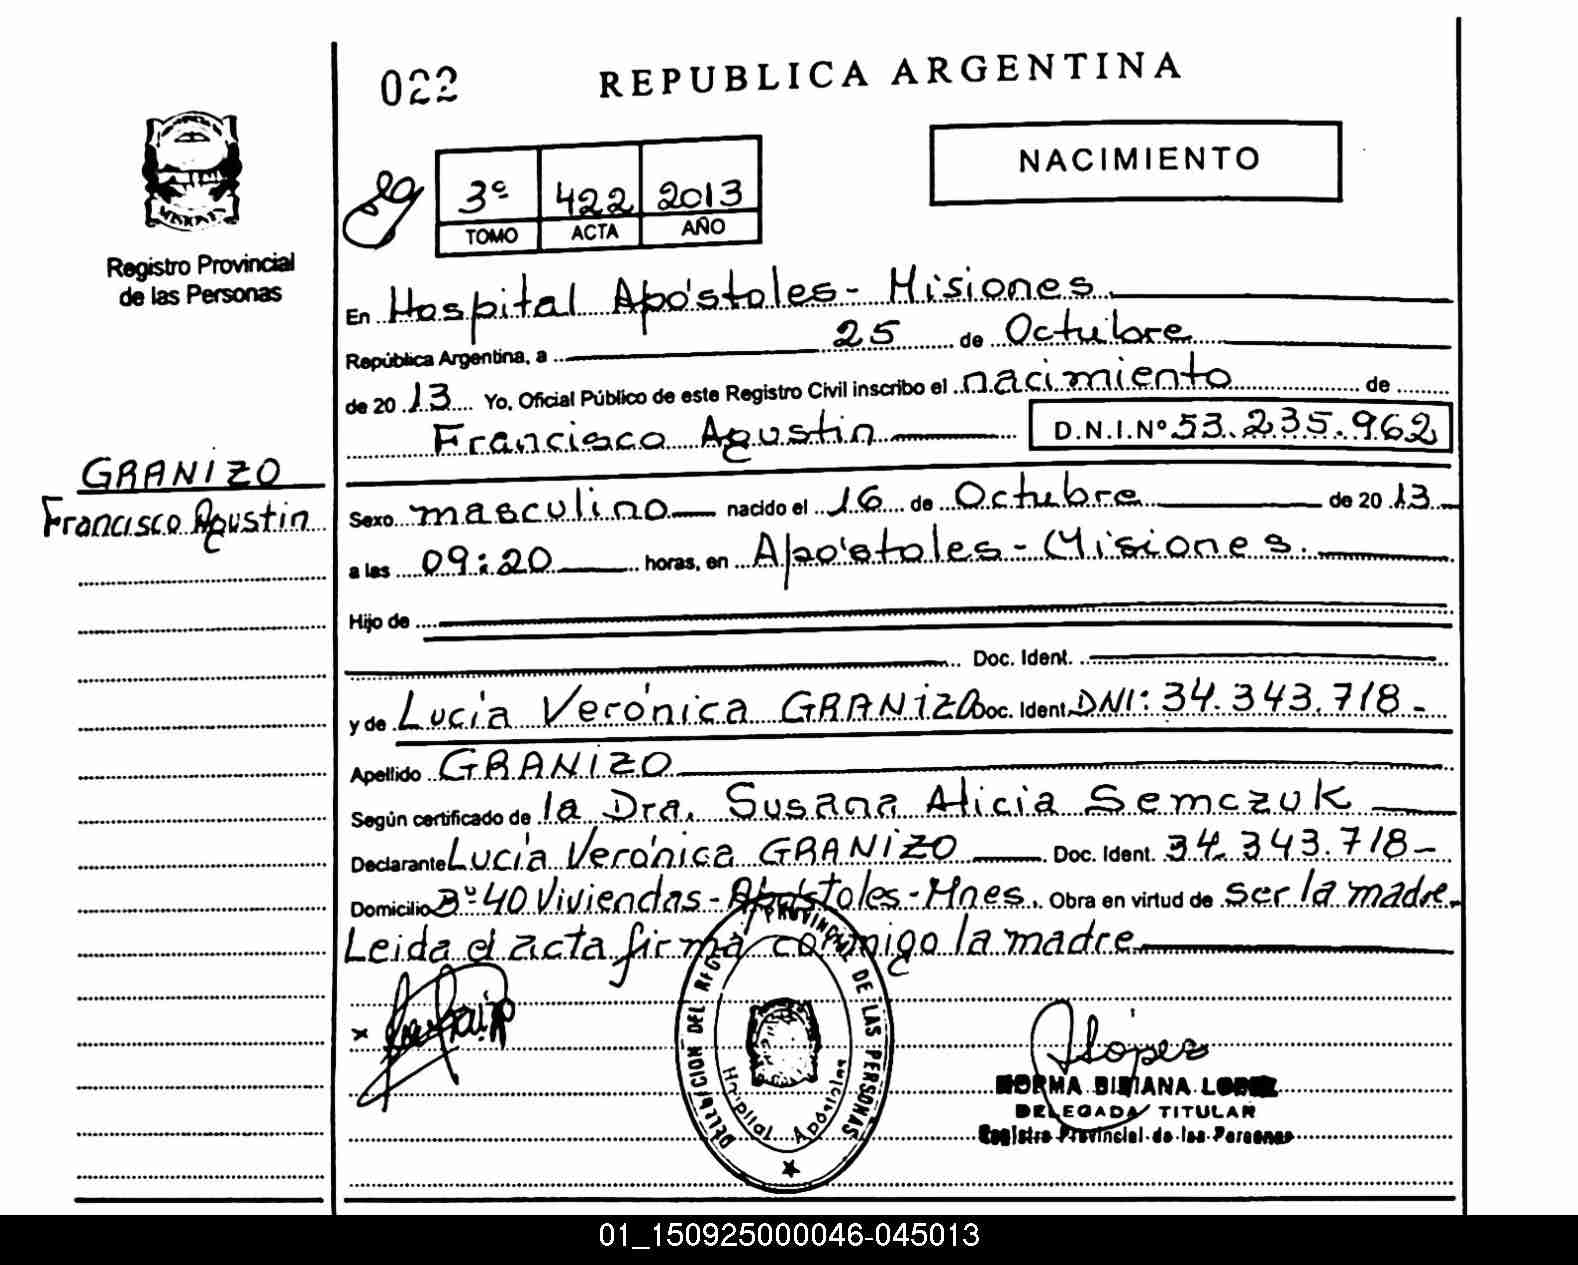 022
REPUBLICA ARGENTINA
NACIMIENTO
3º 422 2013
TOMO ACTA AÑO
Registro Provincial
de las Personas
En Hospital Apóstoles - Misiones.
República Argentina, a 25 de Octubre
de 20 13 Yo, Oficial Público de este Registro Civil inscribo el nacimiento de
Francisco Agustin D.N.I.Nº 53.235.962
GRANIZO
Francisco Agustin
Sexo masculino nacido el 16 de Octubre de 20 13
a las 09:20 horas, en Apóstoles - Misiones.
Hijo de
Doc. Ident.
y de Lucía Verónica GRANIZO Doc. Ident. DNI: 34.343.718 -
Apellido GRANIZO
Según certificado de la Dra. Susana Alicia Semczuk
Declarante Lucía Verónica GRANIZO Doc. Ident. 34.343.718 -
Domicilio Bº 40 Viviendas - Apóstoles - Mnes. Obra en virtud de ser la madre.
Leida el acta firma conmigo la madre
PROVINCIAL DE LAS PERSONAS
Hospital Apóstoles
NORMA BIBIANA LOPEZ
DELEGADA TITULAR
Registro Provincial de las Personas
01_150925000046-045013